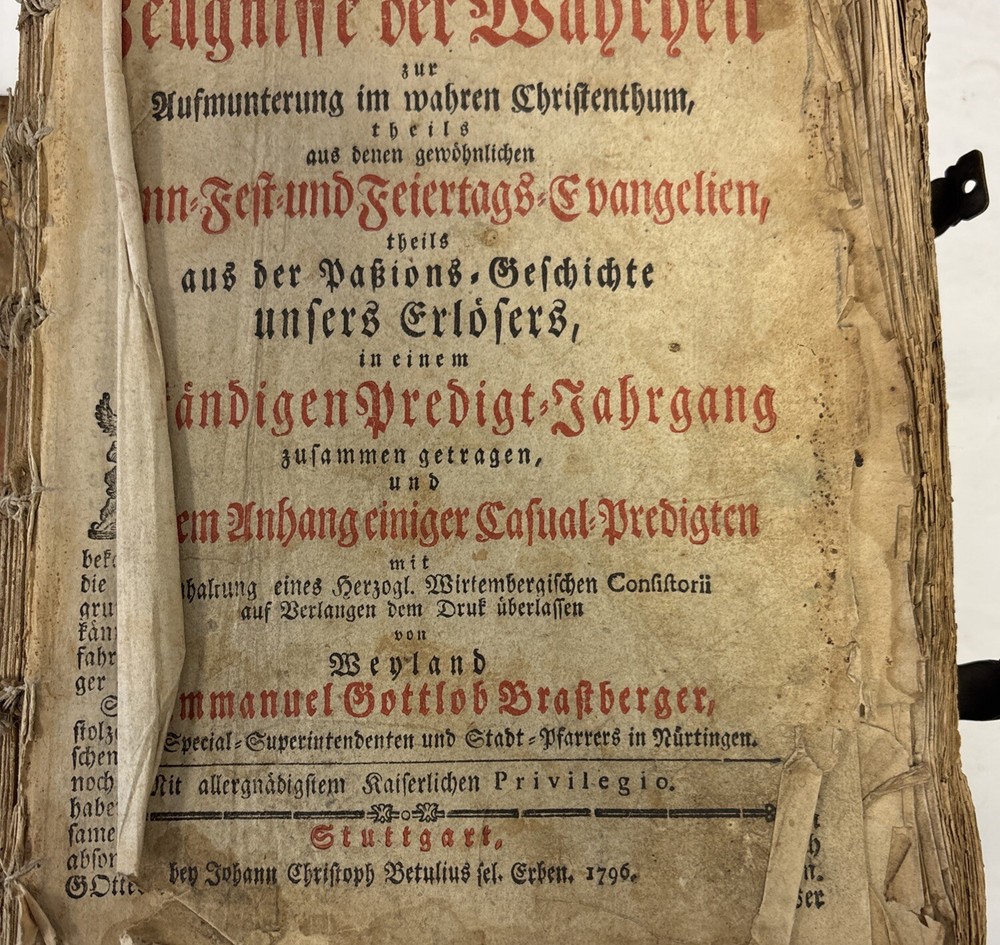 Zeugnisse der Wahrheit
zur
Aufmunterung im wahren Christenthum,
theils
aus denen gewöhnlichen
nn-Fest-und Feiertags-Evangelien,
theils
aus der Paßions-Geschichte
unsers Erlösers,
in einem
ändigen Predigt-Jahrgang
zusammen getragen,
und
em Anhang einiger Casual-Predigten
mit
haltung eines Herzogl. Wirtembergischen Consistorii
auf Verlangen dem Druk überlassen
von
Weyland
mmanuel Gottlob Brastberger,
Special-Superintendenten und Stadt-Pfarrers in Nürtingen.
Mit allergnädigstem Kaiserlichen Privilegio.
Stuttgart,
bey Johann Christoph Betulius sel. Erben. 1796.
die
gru
kän
fahr
ger
stolz
schen
noch
habe
same
absor
GOtte